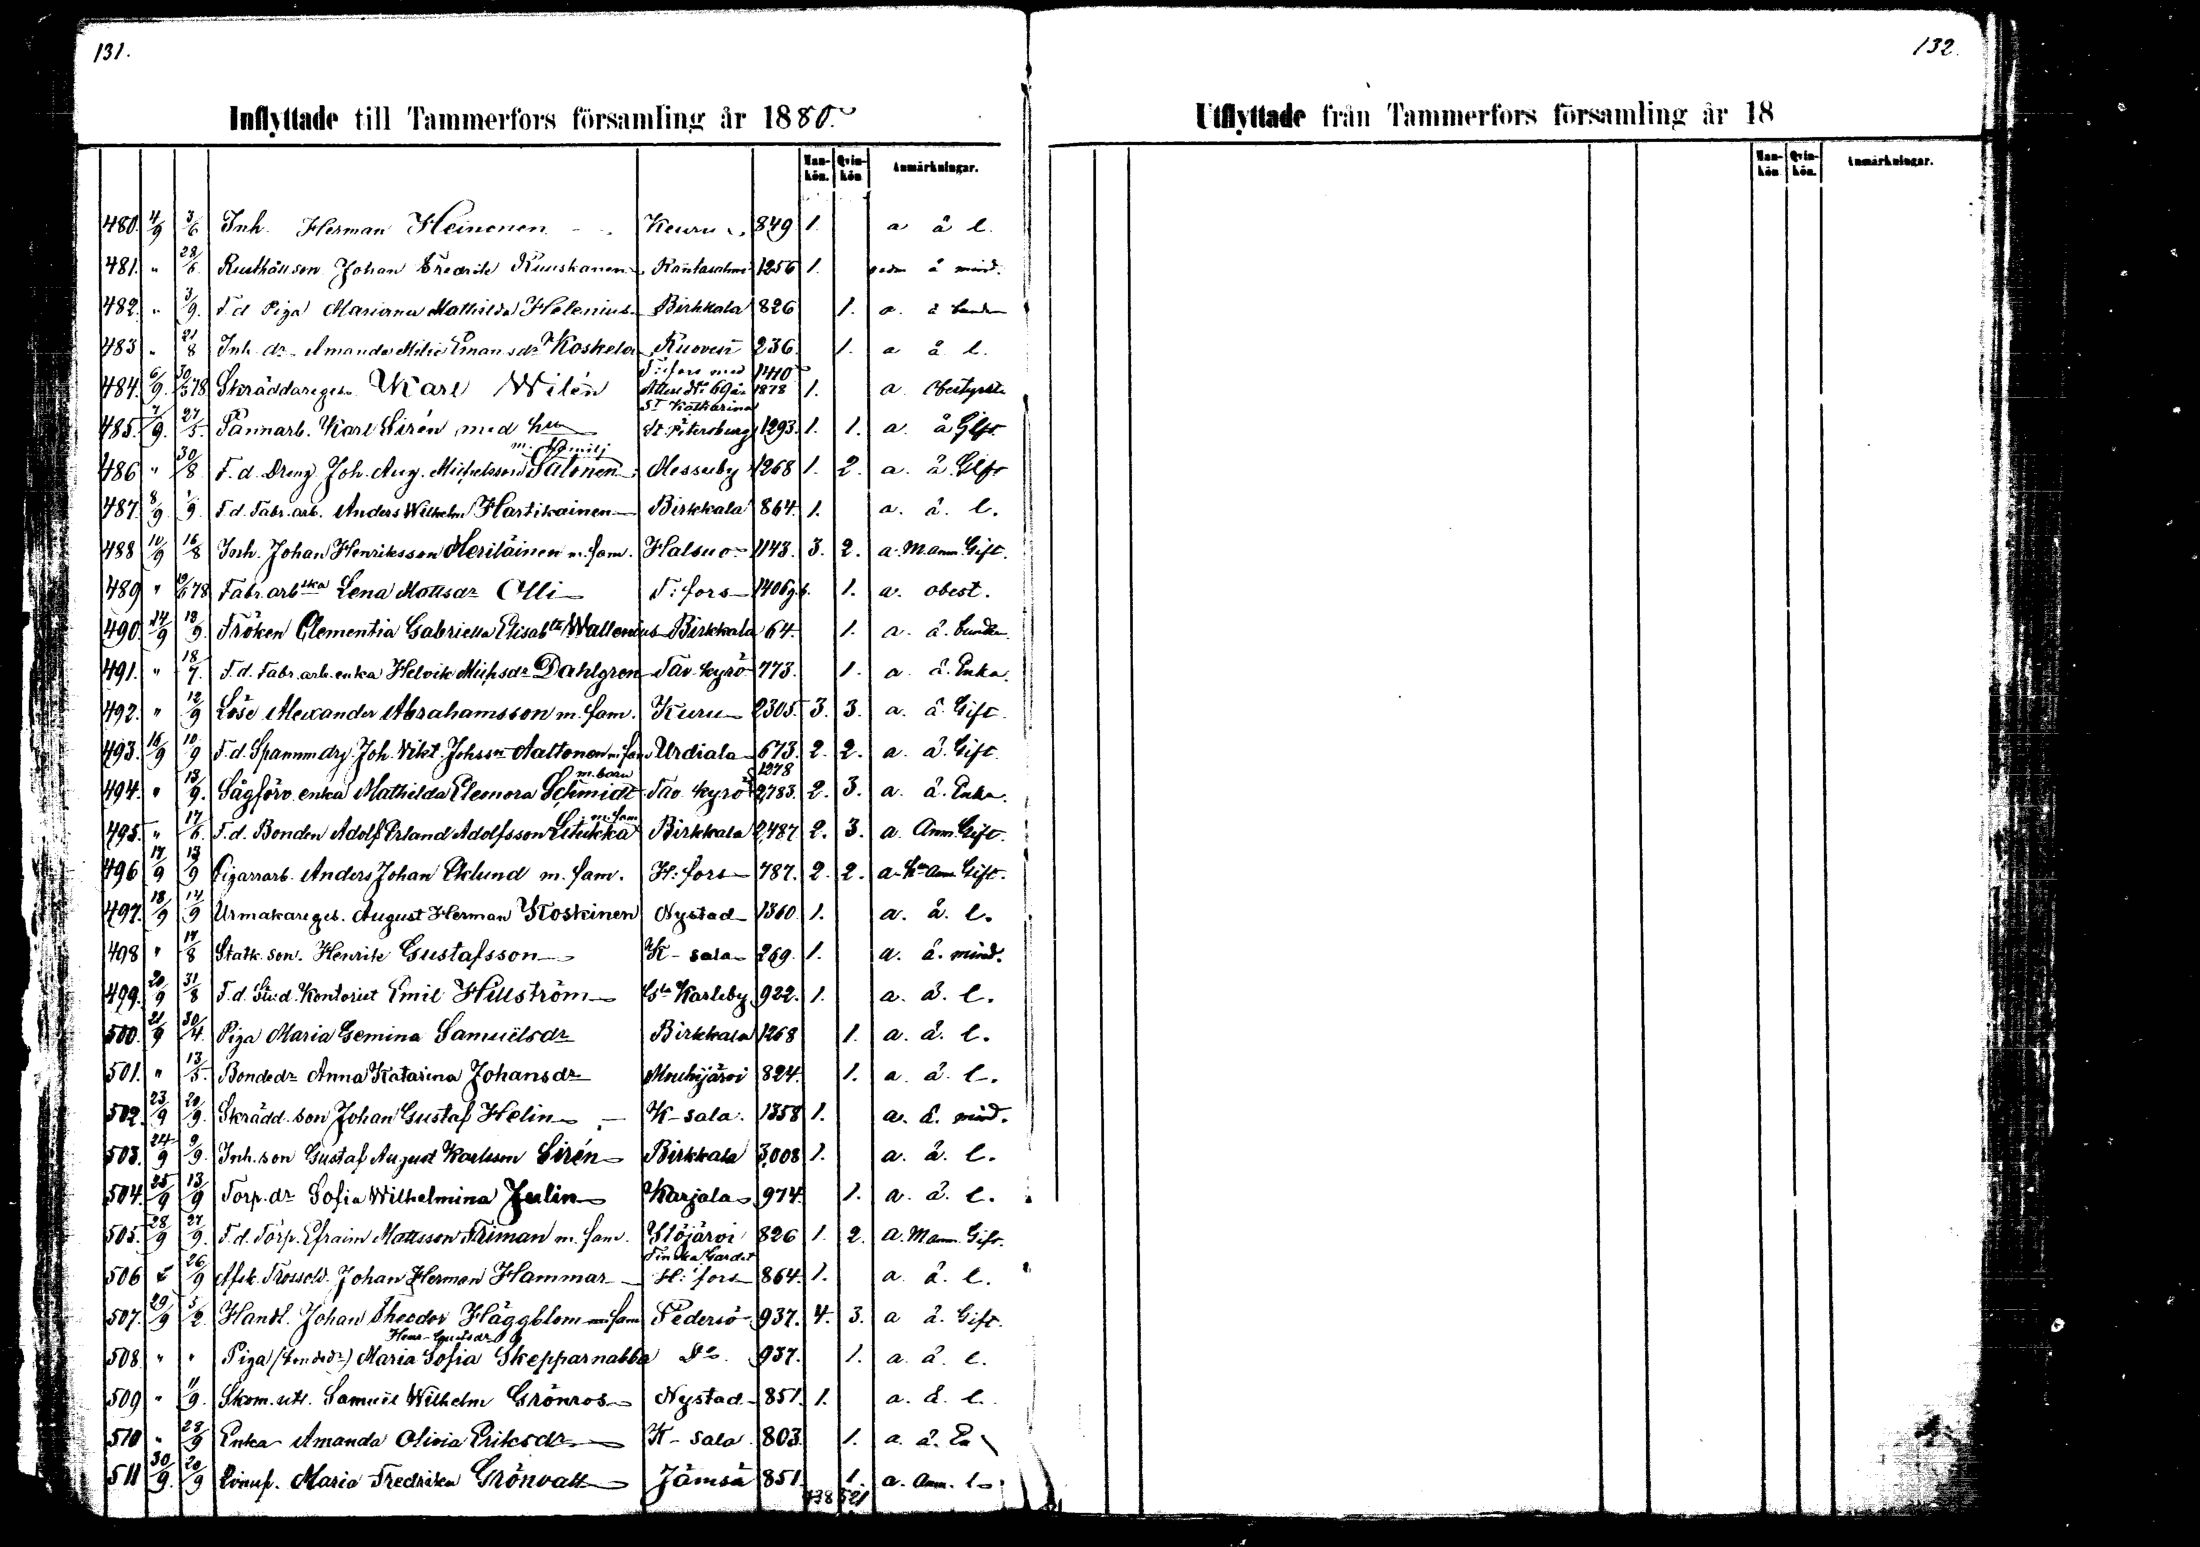 131.
Inflyttade till Tammerfors församling år 1880.
Man-kön. Qvin-kön Anmärkningar.
480. 4/9 3/6 Inh. Herman Heinonen Keuru 849 1. a å l.
481. " 28/6 Rusthåll.son Johan Fredrik Kuuskanen Rantasalmi 1256 1. å mind.
482. " 3/9. F.d Piga Marianna Mathilda Helenius Birkkala 826 1. a. å
483 " 21/8 Inh. dr Amanda Eman.sdr Koskela Ruovesi 236. 1. a å l.
484. 6/9. 30/3 78 Skräddareges. Karl Wilén T:fors med Attest No 69 år 1878 1410 1. a. Obestyrkt
485. 7/9. 27/5. Pannarb. Karl Sirén med hu St Katharina St. Petersburg 1293. 1. 1. a. å Gift.
486 " 30/8 F.d. Dreng Joh. Aug. Michelsson Salonen m. familj Messuby 1268 1. 2. a. å. Gift
487. 8/9 /9. F.d. Fabr.arb. Anders Wilhelm Hartikainen Birkkala 864. 1. a. å. l.
488 10/9 16/8 Inh. Johan Henriksson Meriläinen m. fam. Halsuo 1143. 3. 2. a. Mann. Gift.
489 " 19/6 78 Fabr.arbska Lena Mattsdr Olli T:fors 1406 1. a. obest.
490. 14/9 13/9. Fröken Clementia Gabriella Elisabth Wallenius Birkkala 64. 1. a. å.
491. " 18/7. F.d. Fabr.arb.enka Helvik Michsdr Dahlgren Tav. kyrö 773. 1. a. å. Enka.
492. " 12/9 Löse Alexander Abrahamsson m. fam. Kuru 2305. 3. 3. a. å. Gift.
493. 16/9 10/9 F.d. Spannmdrg. Joh. Vikt. Johsson Aaltonen m. fam Urdiala 673. 2. 2. a. å. Gift.
494. " 13/9. Sågförv. enka Mathilda Eleonora Schmidt m. barn Tav. kyrö 1278 2,783. 2. 3. a. å. Enka.
495. " 17/6. F.d. Bonden Adolf Erland Adolfsson Litukka m. fam Birkkala 2,487 2. 3. a. Anm. Gift.
496 17/9 13/9 Cigarrarb. Anders Johan Eklund m. fam. H:fors 787. 2. 2. a. Gift.
497. 18/9 14/9 Urmakareges. August Herman Koskinen Nystad 1360. 1. a. å. l.
498 " 17/8 Statk. son. Henrik Gustafsson K-sala 269. 1. a. å. mind.
499. 20/9 31/8 F.d. Stud. Kontorist Emil Hillström Gla Karleby 922. 1. a. å. l.
500. 21/9 30/4. Piga Maria Gemina Samuelsdr Birkkala 1268 1. a. å. l.
501. " 13/5. Bondedr Anna Katarina Johansdr Mouhijärvi 824. 1. a. å. l.
502. 23/9 20/9. Skrädd. son Johan Gustaf Helin K-sala. 1358 1. a. å. mind.
503. 24/9 9/9. Inh. son Gustaf August Karlsson Sirén Birkkala 3,008 1. a. å. l.
504. 25/9 13/9 Torp. dr Sofia Wilhelmina Julin Karjala 974. 1. a. å. l.
505. 28/9 27/9. F.d. Torp. Efraim Mattsson Friman m. fam. Ylöjärvi 826 1. 2. a. Mann. Gift.
506 " 26/9 Afsk. Johan Herman Hammar Finska Gardet H:fors 864. 1. a. å. l.
507. 29/9 5/2. Handl. Johan Theodor Häggblom m. fam Pedersö 937. 4. 3. a å. Gift.
508. " " Piga Maria Sofia Skepparnabba Do 937. 1. a. å. l.
509 " 11/9. Skom. utl. Samuel Wilhelm Grönros Nystad 851. 1. a. å. l.
510 " 28/9 Enka Amanda Olivia Eriksdr K-sala. 803. 1. a. å. En
511 30/9. 20/9 Maria Fredrika Grönvall Jämsä 851. 1. a. Anm. l
438 521
132.
Utflyttade från Tammerfors församling år 18
Man-kön Qvin-kön. Anmärkningar.